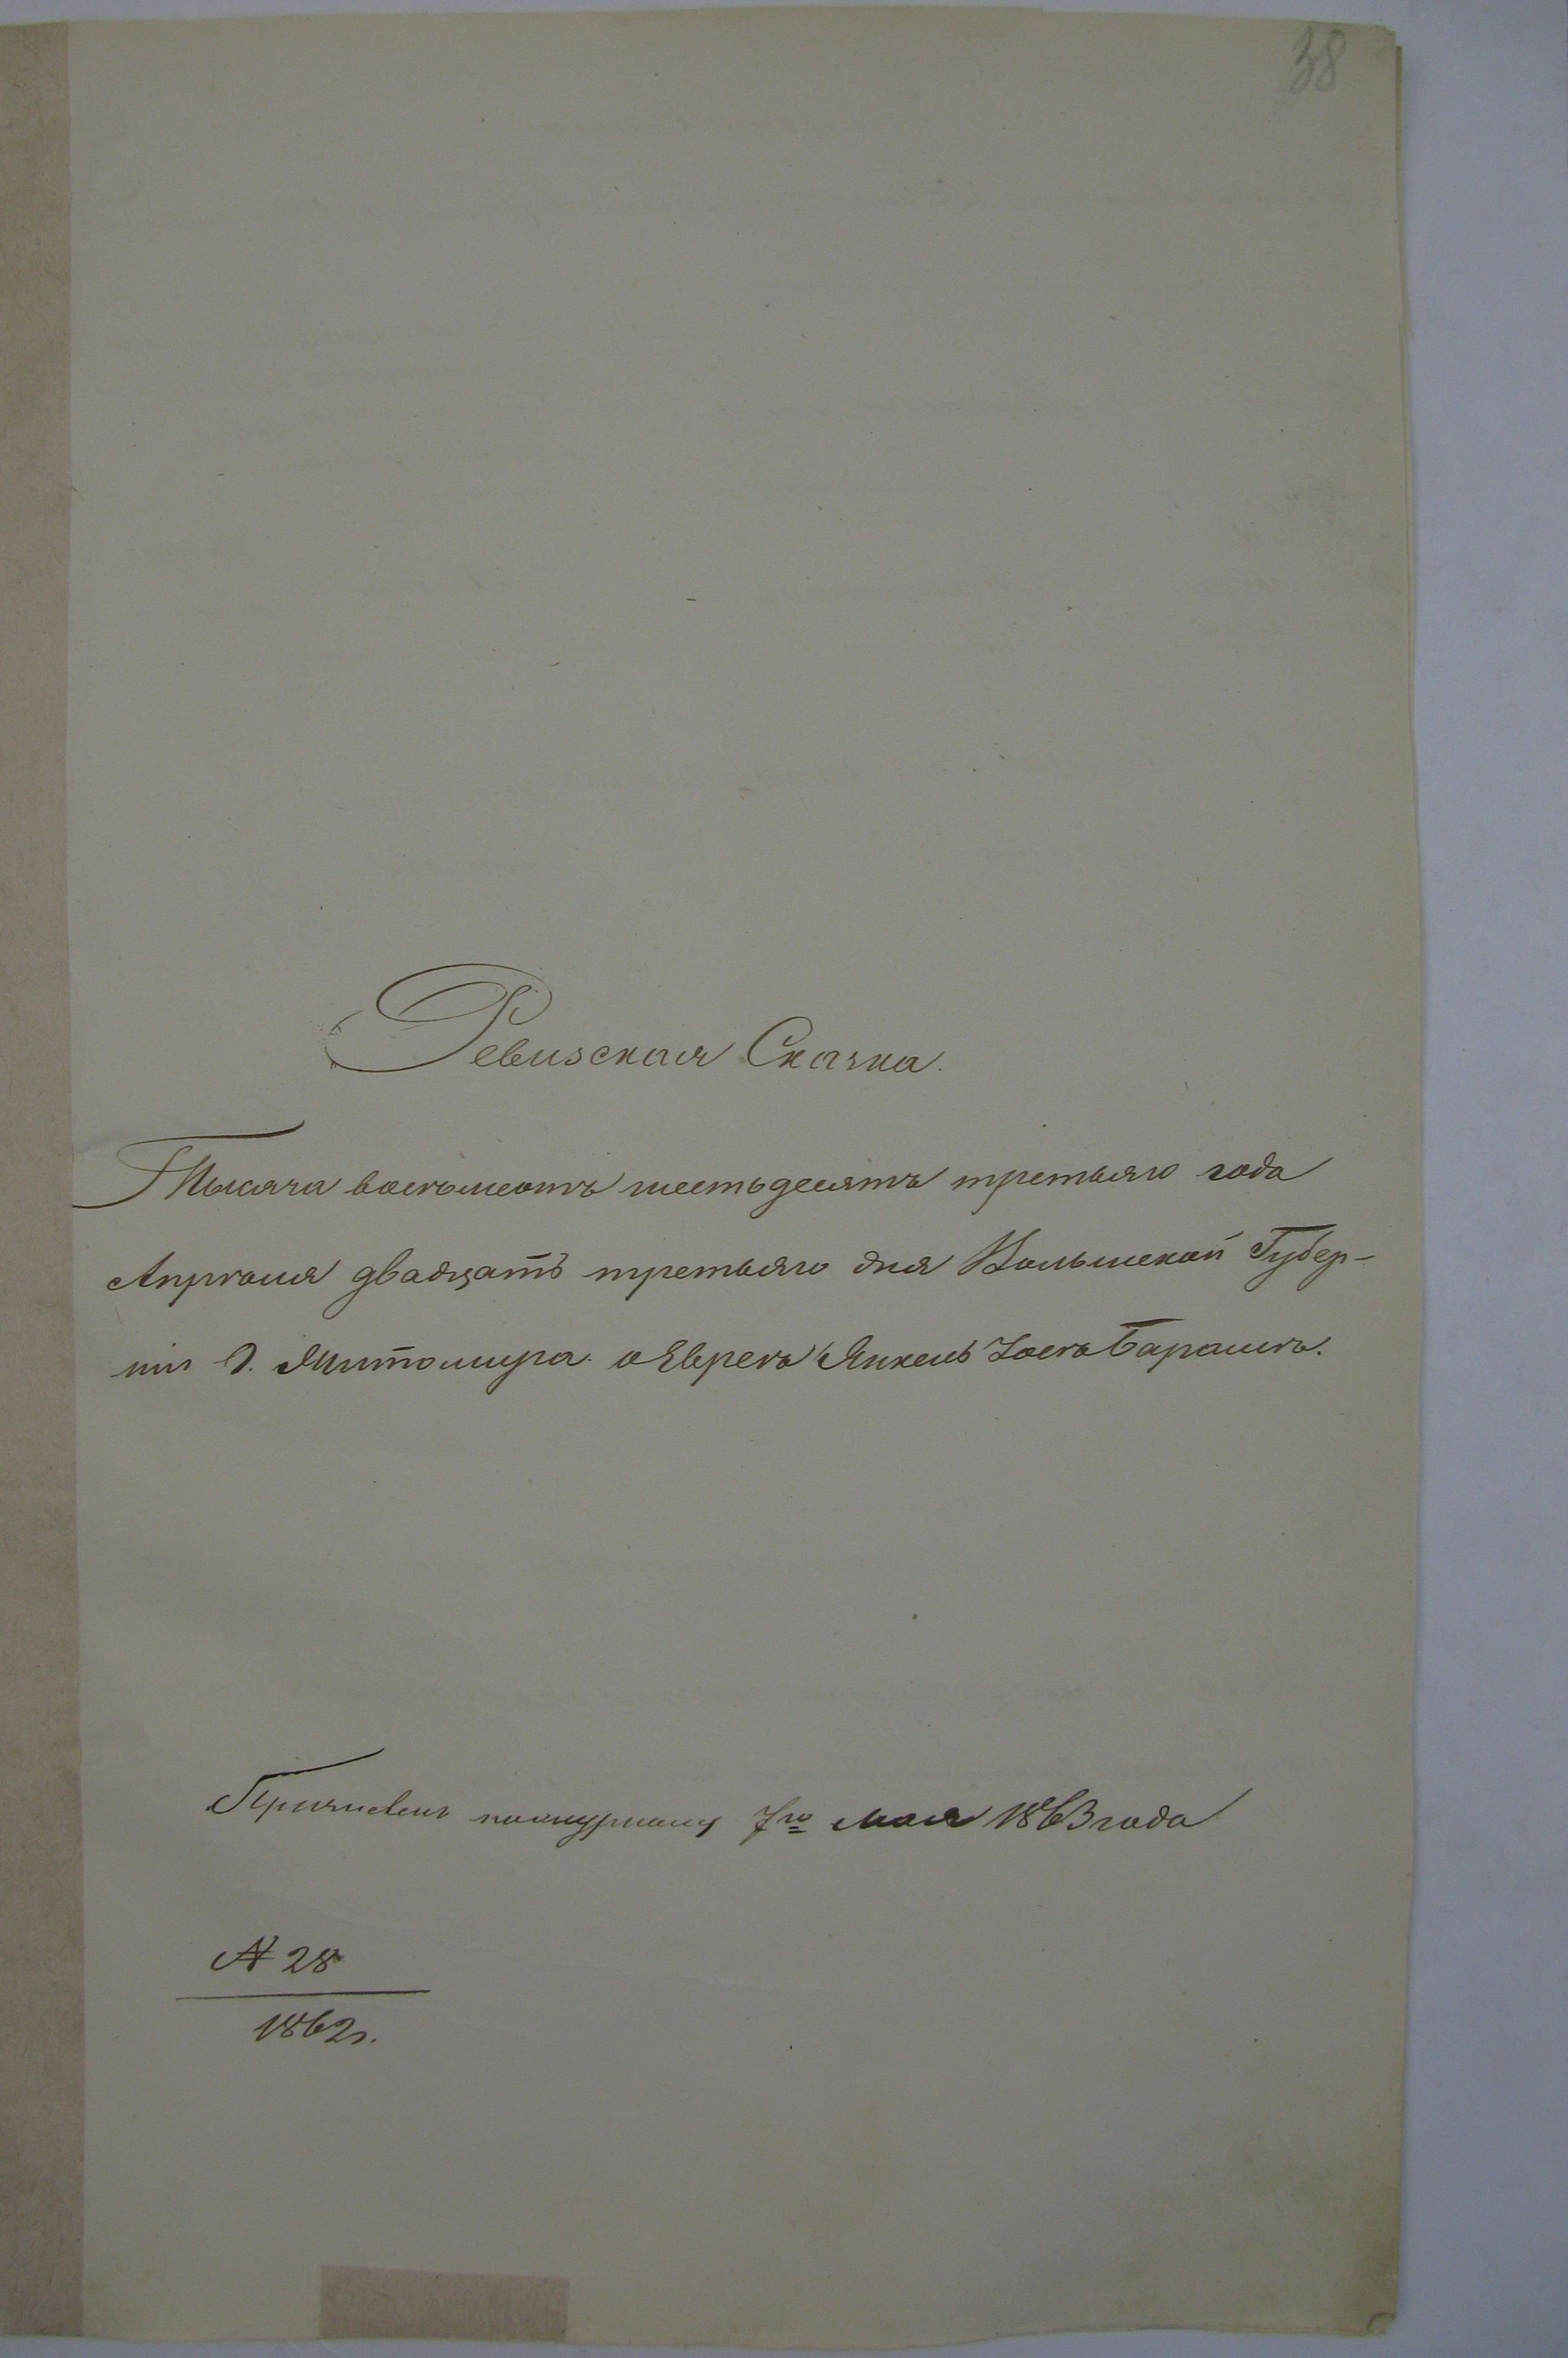 38
Ревизская Сказка.
Тысяча восемьсотъ шестьдесятъ третьяго года
Апрѣля двадцать третьяго дня Волынской Губер-
ніи Г. Житомира. о Евреѣ Янкель Іосѣ Барашѣ.
по журналу 7го мая 1863 года
№ 28
1862г.